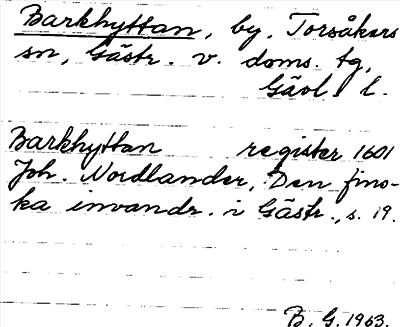 Barkhyttan, by. Torsåkers
sn, Gästr. v. doms. tg,
Gävl. l.
Barkhyttan register 1601
Joh. Nordlander, Den fins-
ka invandr. i Gästr., s. 19.
B. G. 1963.